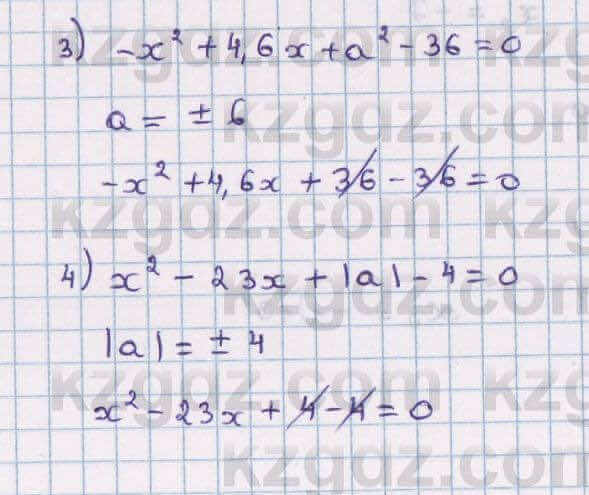 3) -x² + 4,6x + a² - 36 = 0
a = ± 6
-x² + 4,6x + 36 - 36 = 0
4) x² - 23x + |a| - 4 = 0
|a| = ± 4
x² - 23x + 4 - 4 = 0
kzgdz.com